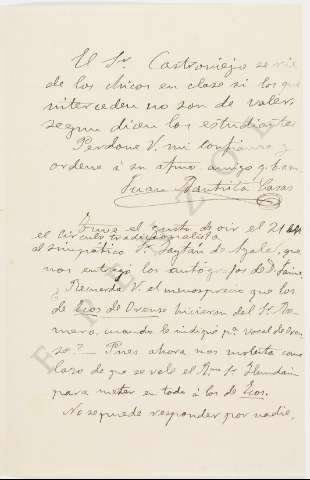 El Sr. Castroviejo se ríe
de los chicos en clase si los que
interceden no son de valer,
segun dicen los estudiantes
Perdone V. mi confianza y
ordene á su afmo. amigo q. b. s. m.
Juan Bautista Casas
Tuve el gusto de oir el 21 en
el círculo tradicionalista
al simpático Sr. Gaytán de Ayala, que
nos entregó los autógrafos de D. Jaime
¿Recuerda V. el menosprecio que los
de Ecos de Orense hicieron del Sr. Ro-
mero, cuando le indiqué pa. vocal de Oren-
se? — Pues ahora nos molesta con
lazo de que se vale el Sr.
para meter en todo á los de Ecos.
No se puede responder por nadie.